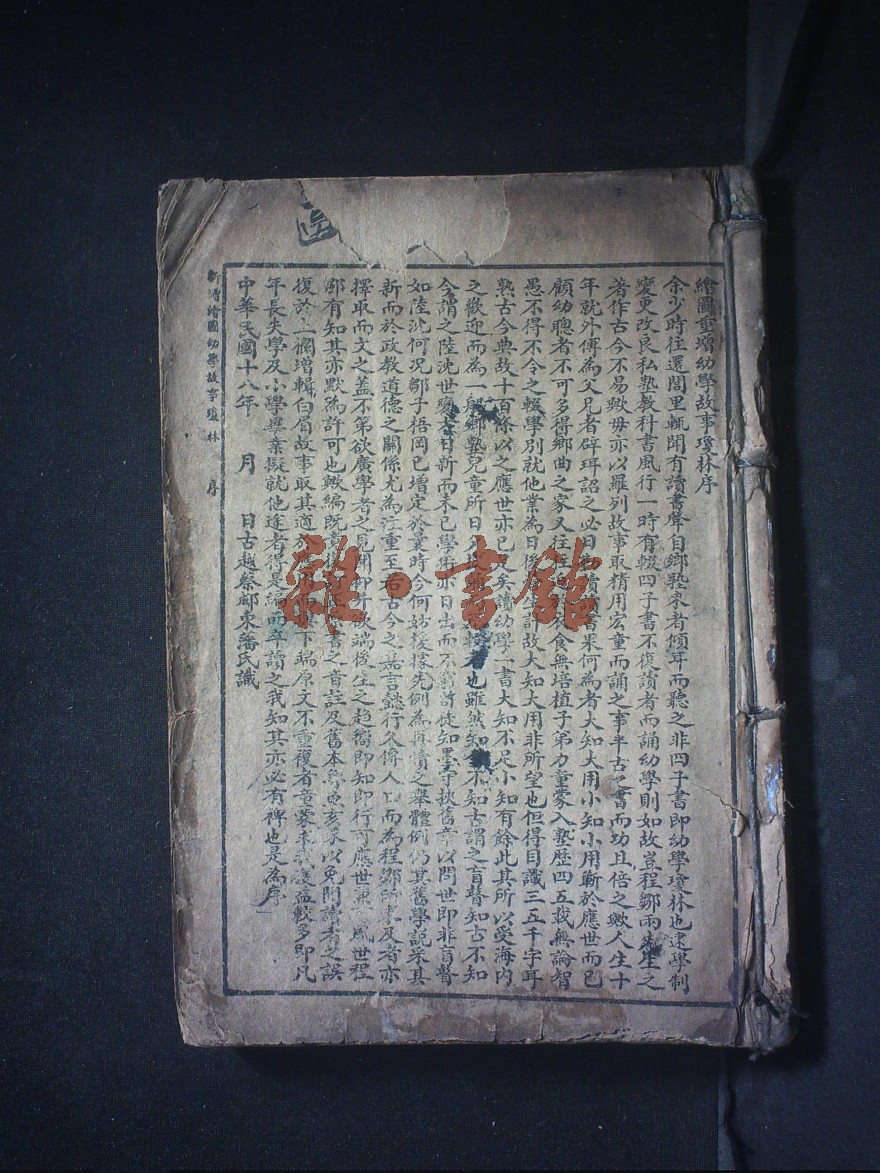 繪圖重增幼學故事瓊林序
余少時往還閭里輒聞有讀書聲自鄉塾來者傾耳而聽之非四子書即幼學瓊林也逮學制
變更改良私塾教科書風行一時有輟四子書不復讀者而誦幼學則如故豈程鄒兩先生之
著作古今不易歟毋亦以羅列故事取精用宏童而誦之事半古之書而功且倍之歟人生十
年就外傅為父兄者辟珥詔之必曰讀書果何為者大知大用小知小用蘄於應世而已
顧幼聰者不可多得鄉曲之家又往食無培植子弟力童蒙入塾歷四五載無論智
愚不得不令之輟學別就他業為日後生計故大知大用非所望也但得目識三五千字耳
熟古今典故十百條以之應世亦已足矣讀幼學一書大知不足小知有餘此其所以受海內
之歡迎而為一般鄉塾兒童所日也雖然知今不知古謂之盲瞽知古不知
今謂之陸沈世變大日新而未已學術亦日出而不窮苟徒知墨守挾舊章以問世即非盲瞽
如陸沈何況鄒子梧岡已增定於曩時今何妨援據先例為再續之舉體例仍其舊學說采其
新而於政教道德之關係尤為注重至若古今之嘉言懿行久得人口而為程鄒所未及者亦
擇取而文之蓋不第欲廣學者之見聞抑行端後生之趨嚮即知即行可應世風世程
鄒有知其亦默為許可也歟編既竟復書之音註及舊本魯魚亥豕以免附讀者之誤
復於上欄增輯白眉故事取其適於下端原文不重復者童蒙未獲益較多即凡
年長失學及小學畢業擬就他途者得是編而卒讀之我知其亦必有裨也是為序
中華民國十八年 月 日古越蔡郕東藩氏識
新增繪圖幼學故事瓊林 序
雜·書館